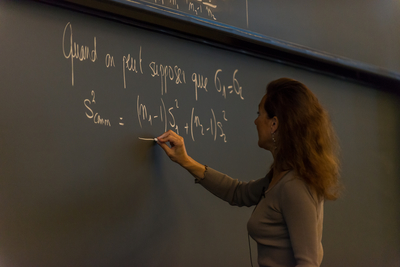 Quand on peut supposer que σ₁ = σ₂
S²comm = (n₁-1)S₁² + (n₂-1)S₂²